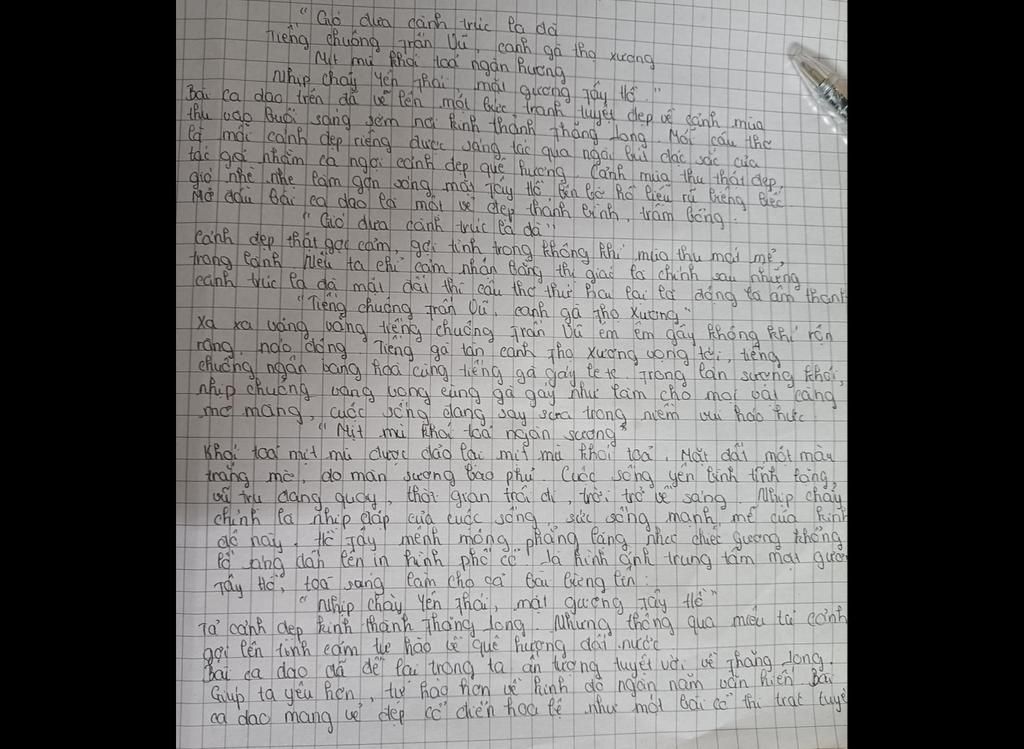 "Gió đưa cành trúc la đà
Tiếng chuông Trấn Vũ, canh gà thọ xương
Mịt mù khói toả ngàn sương
Nhịp chày Yên Thái, mặt gương Tây Hồ."
Bài ca dao trên đã vẽ lên một bức tranh tuyệt đẹp về cảnh mùa
thu vào buổi sáng sớm nơi kinh thành Thăng Long. Mỗi câu thơ
là mỗi cảnh đẹp riêng được sáng tác qua ngòi bút đặc sắc của
tác giả nhằm ca ngợi cảnh đẹp quê hương. Cảnh mùa thu thật đẹp,
gió nhè nhẹ làm gợn sóng mấy Tây Hồ, bên bờ hồ liễu rũ biêng biếc
Mở đầu bài ca dao là một vẻ đẹp thanh bình, trầm bổng.
"Gió đưa cành trúc la đà"
Cảnh đẹp thật gợi cảm, gợi tình trong không khí mùa thu mát mẻ,
trong lành. Nếu ta chỉ cảm nhận bằng thị giác là chính sau những
cành trúc la đà mặt đất thì câu thơ thứ hai lại là động là âm thanh
"Tiếng chuông Trấn Vũ, canh gà Thọ Xương"
Xa xa vẳng vẳng tiếng chuông Trấn Vũ êm êm gây không khí rộn
ràng, náo động. Tiếng gà tàn canh Thọ Xương vọng tới, tiếng
chuông ngân vang hoà cùng tiếng gà gáy te te. Trong làn sương khói,
nhịp chuông vang vọng cùng gà gáy như làm cho mọi vật càng
mơ màng, cuộc sống đang say sưa trong niềm vui háo hức
"Mịt mù khói toả ngàn sương"
Khói toả mịt mù được đảo lại mịt mù khói toả. Mặt đất một màu
trắng mờ, do màn sương bao phủ. Cuộc sống yên bình tĩnh lặng,
vũ trụ đang quay, thời gian trôi đi, trời trở về sáng. Nhịp chày
chính là nhịp đập của cuộc sống, sức sống mạnh mẽ của kinh
đô này. Hồ Tây mênh mông phẳng lặng như chiếc gương khổng
lồ sáng dần lên in hình phố cổ. Là hình ảnh trung tâm mặt gươn
Tây Hồ, toả sáng làm cho cả bài bừng lên:
"Nhịp chày Yên Thái, mặt gương Tây Hồ"
Tả cảnh đẹp kinh thành Thăng Long. Nhưng thông qua miêu tả cảnh
gợi lên tình cảm tự hào về quê hương đất nước
Bài ca dao đã để lại trong ta ấn tượng tuyệt vời về Thăng Long.
Giúp ta yêu hơn, tự hào hơn về kinh đô ngàn năm văn hiến. Bài
ca dao mang vẻ đẹp cổ điển hoa lệ như một bài cổ thi trác tuyệ